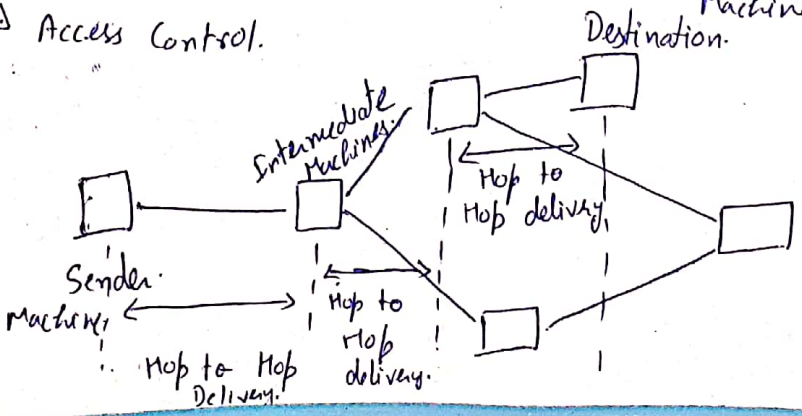 Access Control.
Machin
Destination.
Intermediate
Machines.
Hop to
Hop delivery
Sender
Machine
Hop to
Hop
delivery.
Hop to Hop
Delivery.